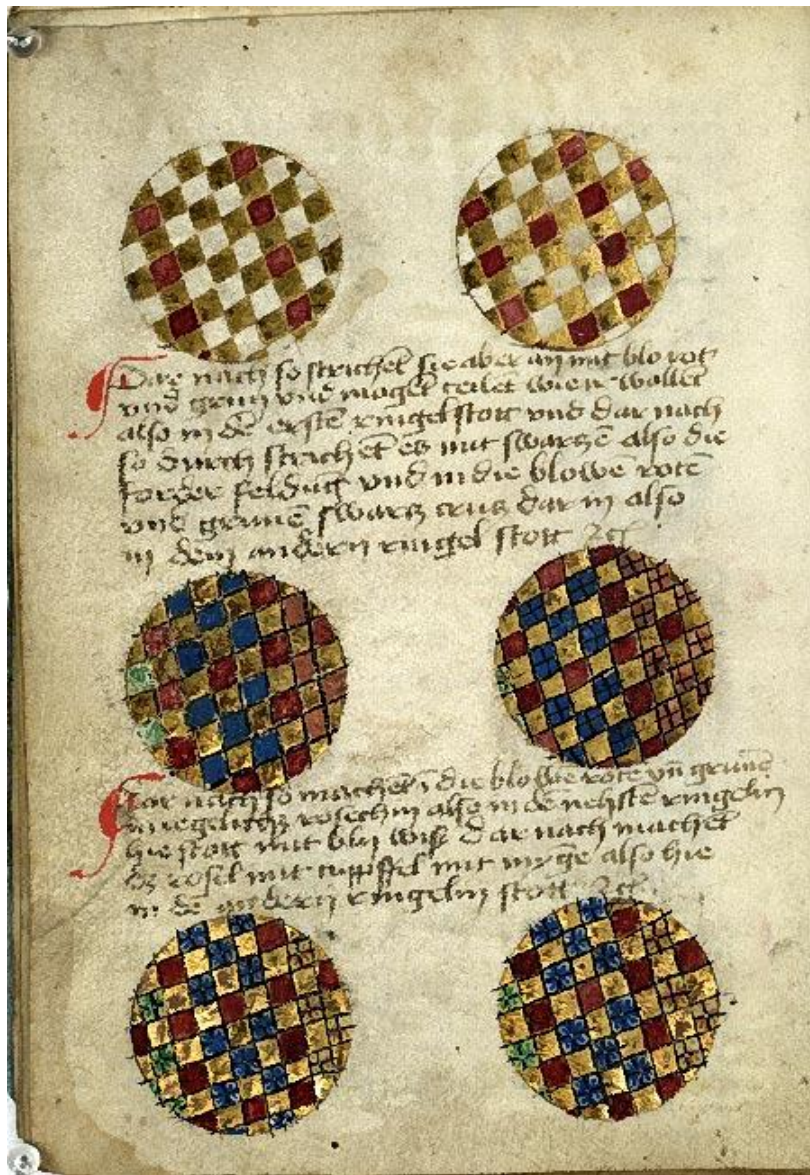 Dar nach so strichet sye aber an mit blo rot
vnd grun vnd mogēt teilet wie ir wollēt
also in dē erstē ringel stott vnd dar nach
so durch strichēt es mit swarzē also die
forder feldūg vnd in die blowē rotē
vnd grunē swarz crus dar in also
in dem andern ringel stott
Dar nach so machēt ī die blowe rote vñ grune
rosechin also in dē nehstē ringelin
hie stott mit bly wiß dar nach machēt
dz rosel mit tuppffel mit also hie
in dē andern ringelin stott